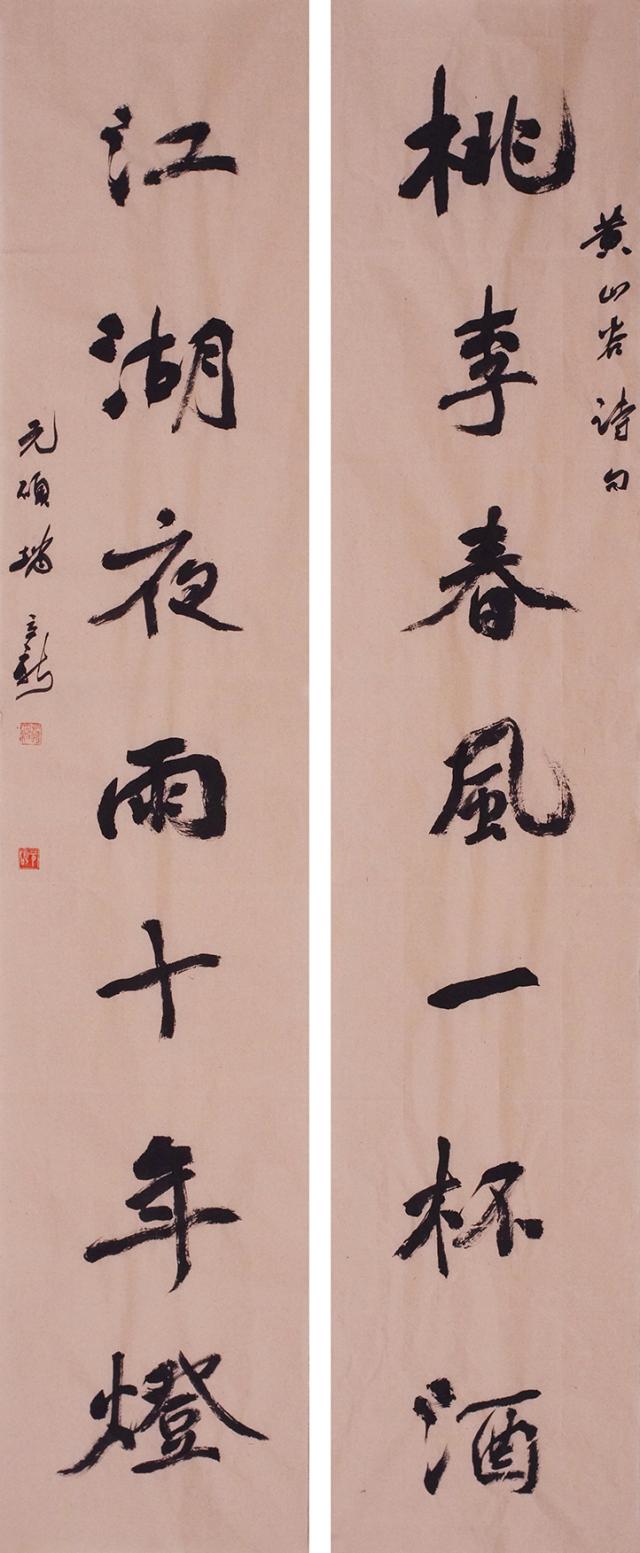 桃李春風一杯酒
黄山谷诗句
江湖夜雨十年燈
元碩